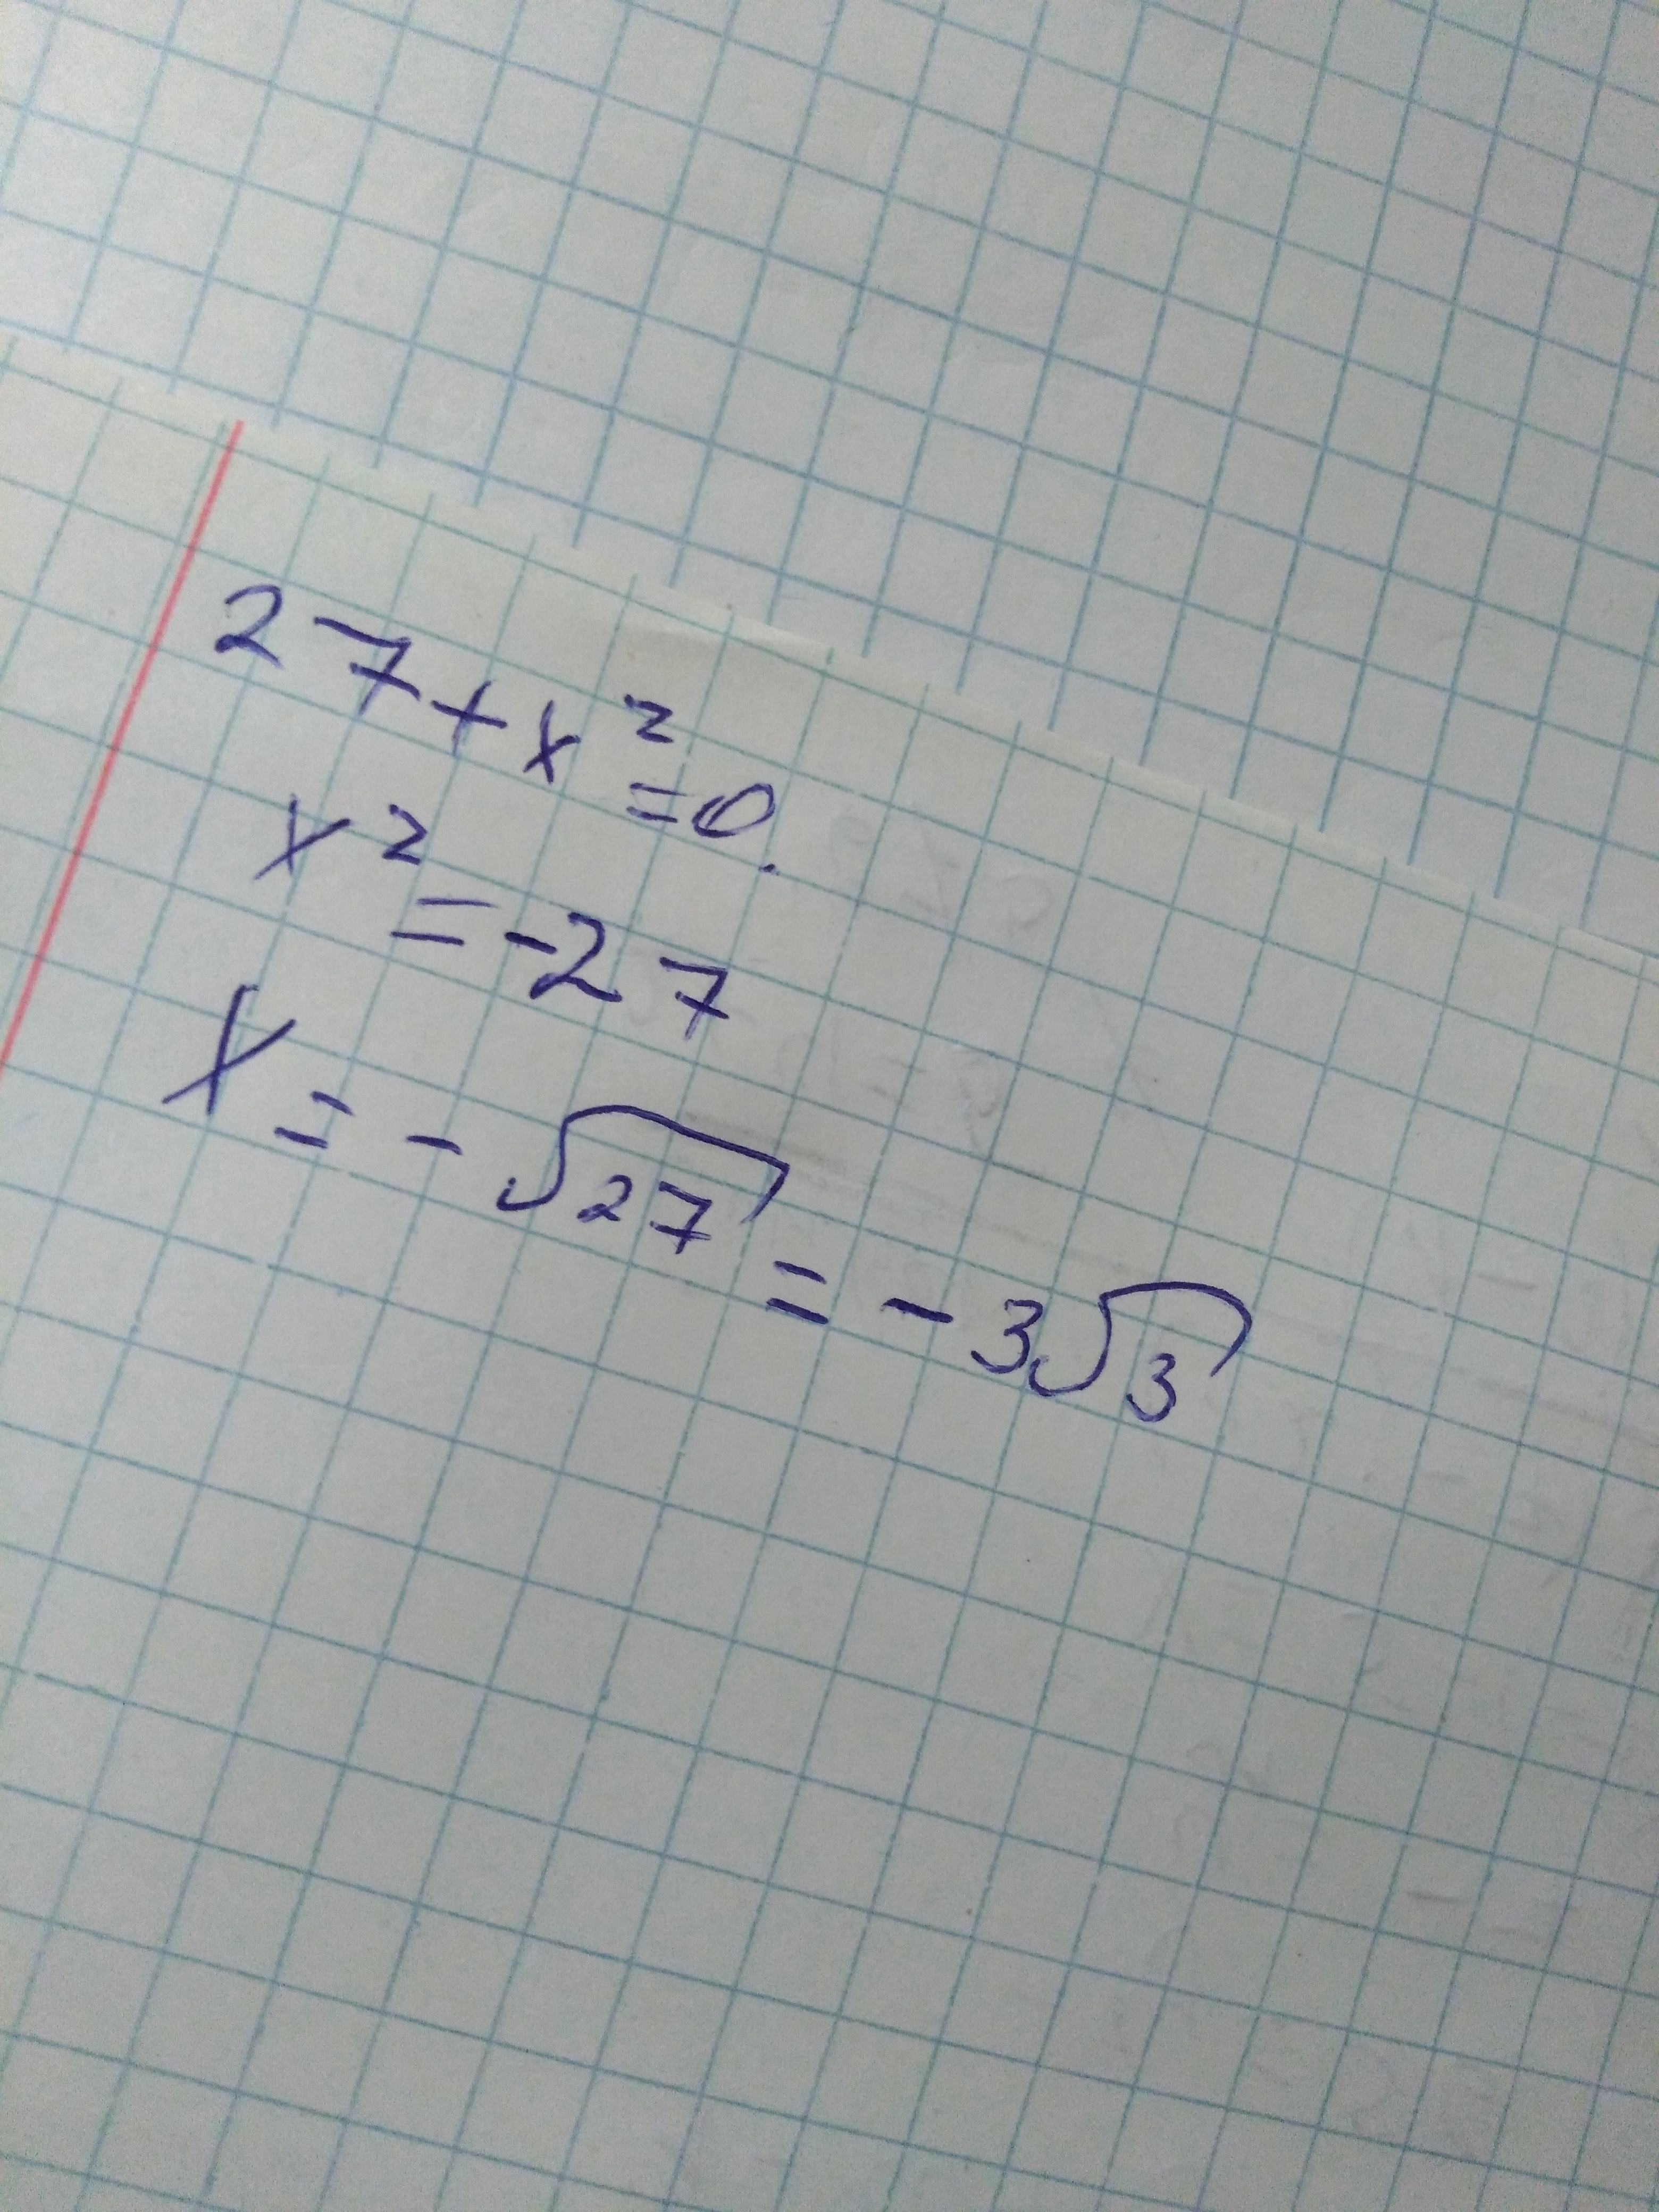 27+x²=0.
x²=-27
x=-√27=-3√3